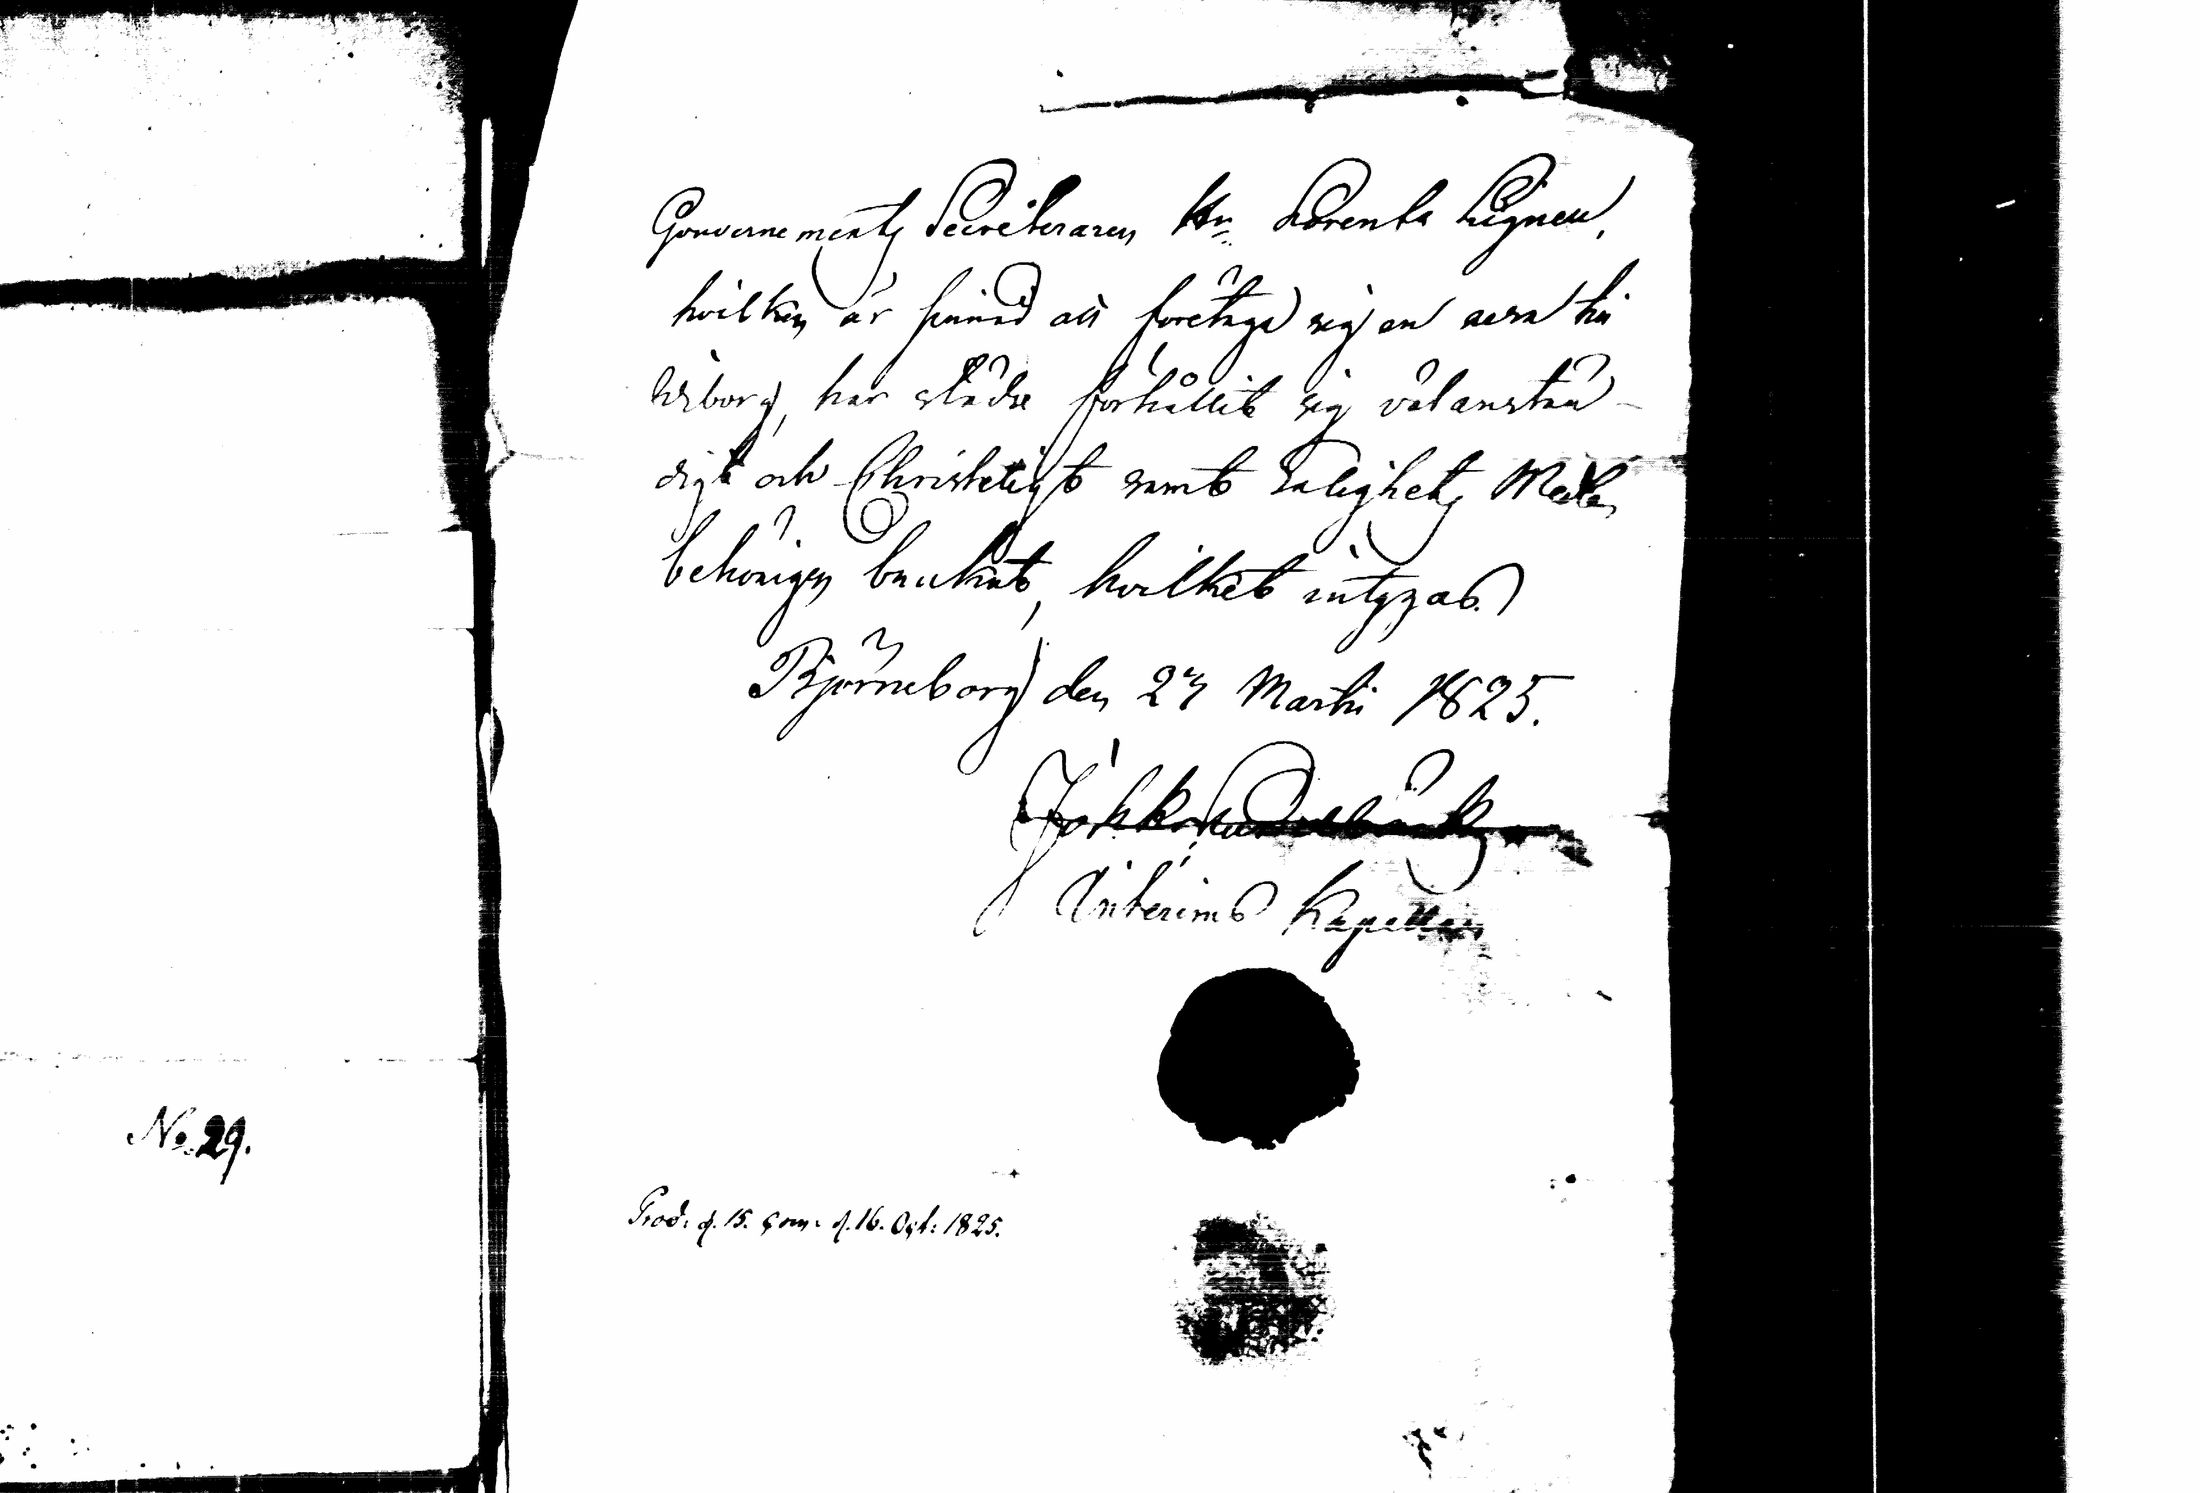 No. 29.
Gouvernements Secreteraren Hr. Lorents Lignell,
hvilken är sinnad att företaga sig en resa till
Wiborg, har städse förhållit sig välanstän-
digt och Christeligt samt Salighets Medlen
behörigen brukat, hvilket intygas.
Björneborg den 27 Martii 1825.
Joh.
Interims Kapellan
Prod: d. 15. d. 16. Oct: 1825.